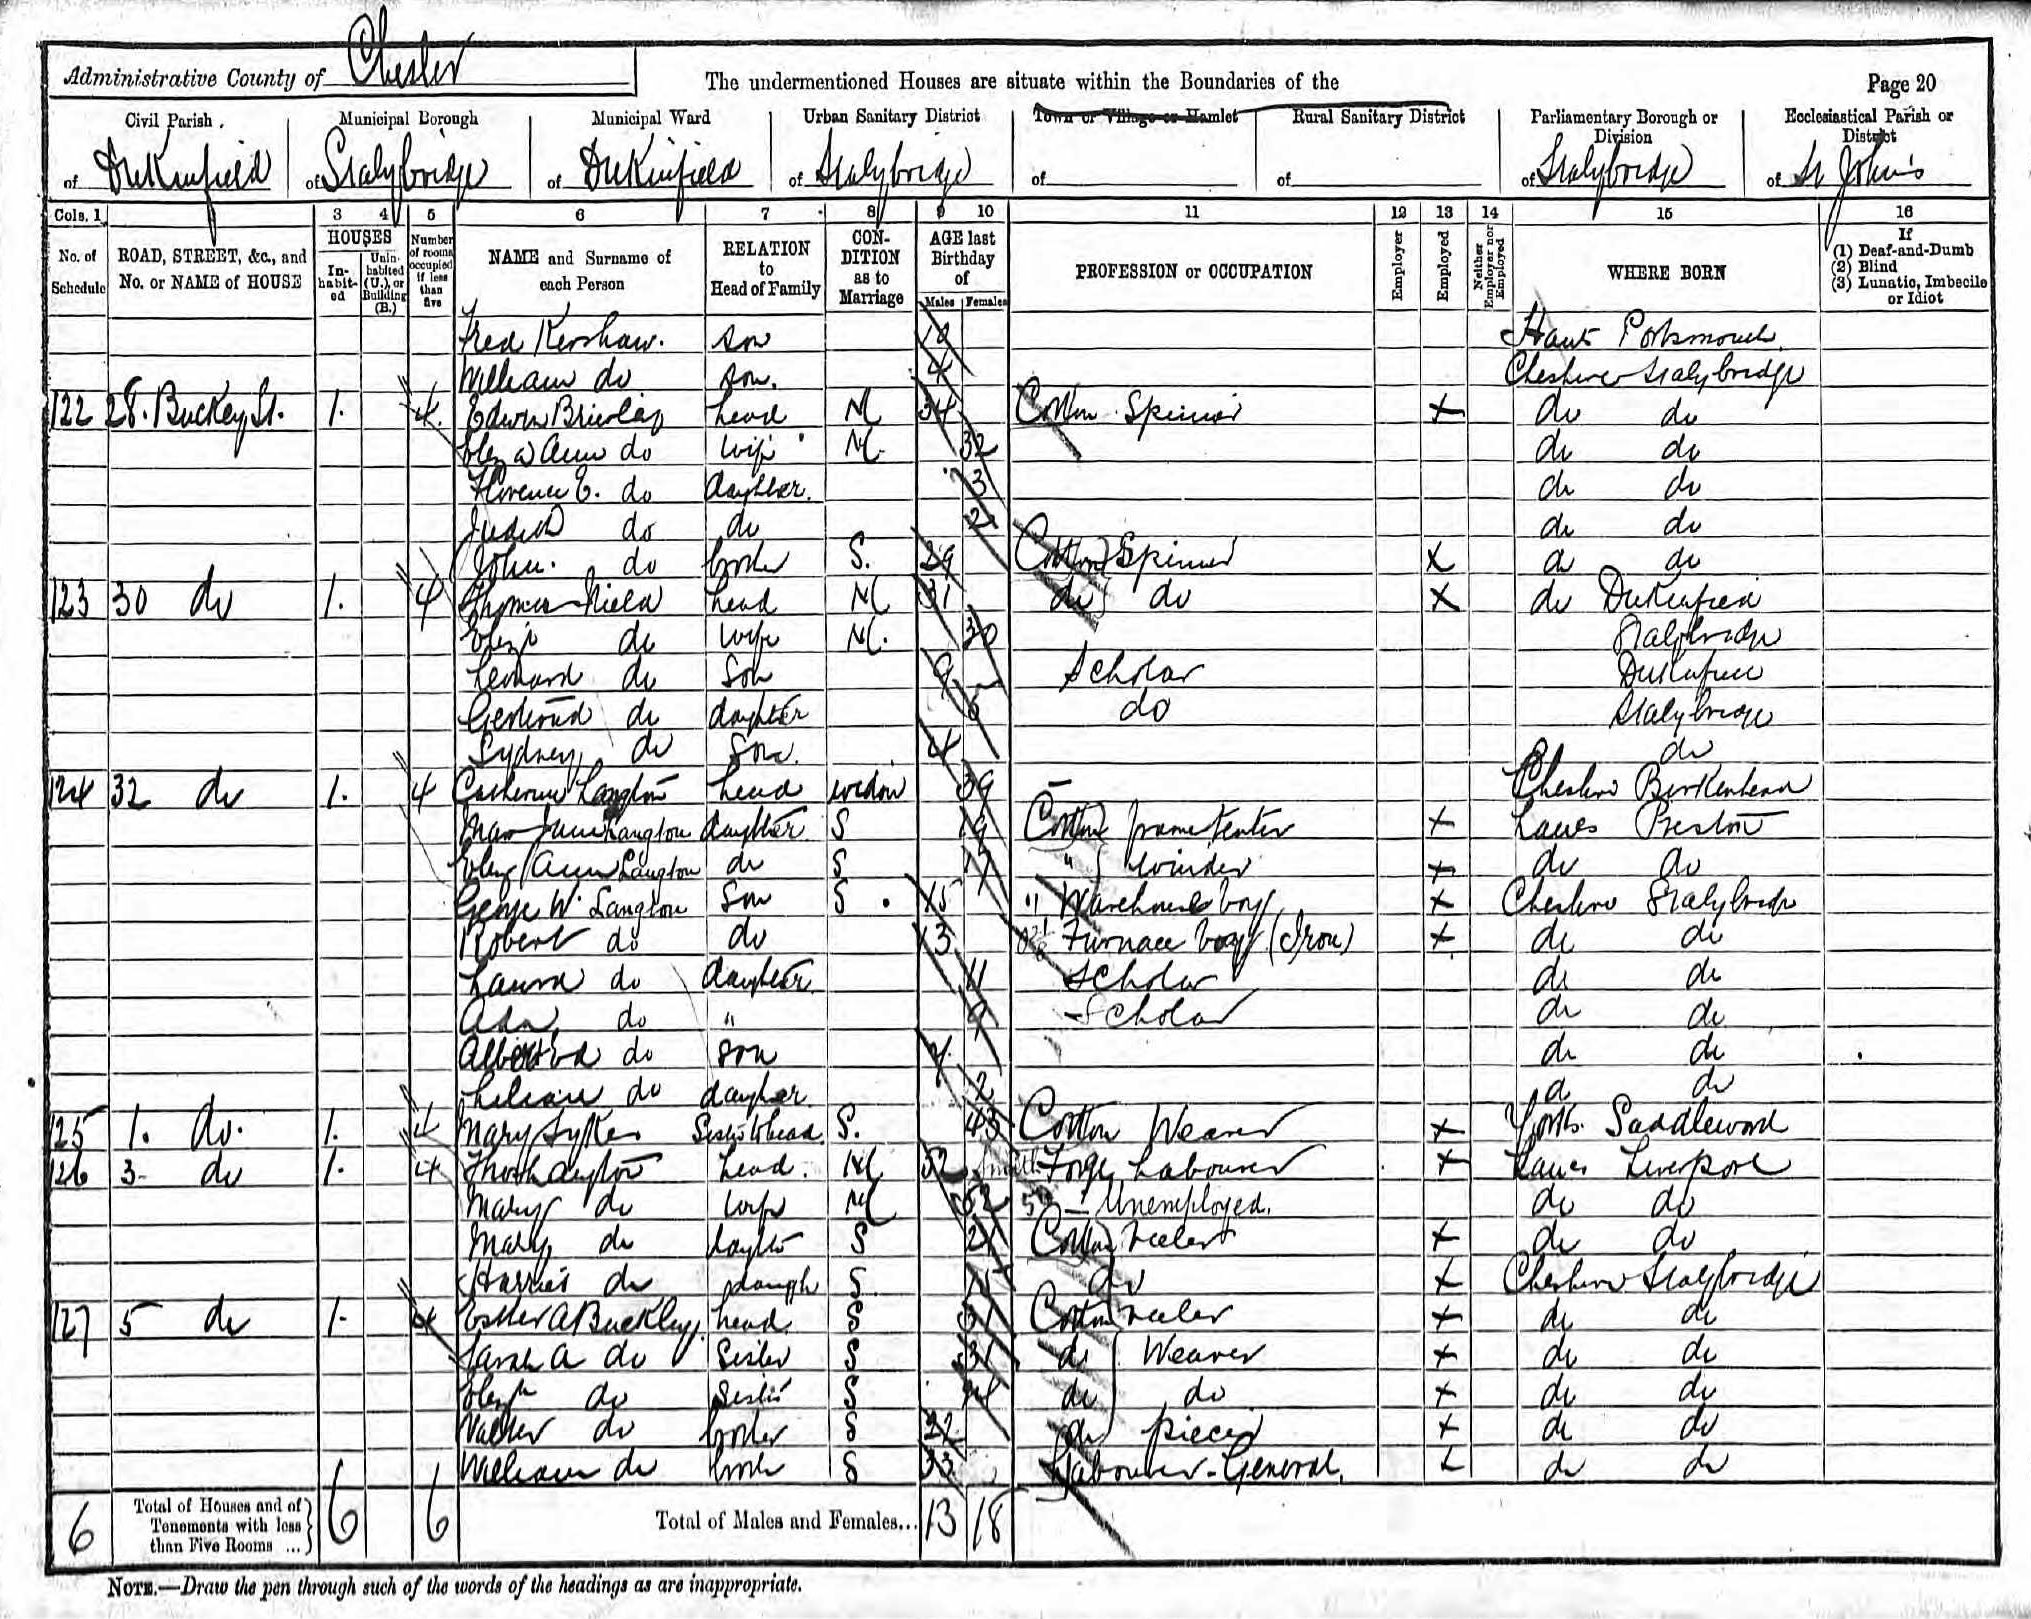 Administrative County of Chester
The undermentioned Houses are situate within the Boundaries of the
Page 20
Civil Parish of Dukinfield
Municipal Borough of Stalybridge
Municipal Ward of Dukinfield
Urban Sanitary District of Stalybridge
Town or Village or Hamlet of
Rural Sanitary District of
Parliamentary Borough or Division of Stalybridge
Ecclesiastical Parish or District of St John's
Cols. 1 3 4 5 6 7 8 9 10 11 12 13 14 15 16
No. of Schedule
ROAD, STREET, &c., and No. or NAME of HOUSE
HOUSES
In-habit-ed
Unin-habited (U.), or Building (B.)
Number of rooms occupied if less than five
NAME and Surname of each Person
RELATION to Head of Family
CON-DITION as to Marriage
AGE last Birthday of
Males Females
PROFESSION or OCCUPATION
Employer
Employed
Neither Employer nor Employed
WHERE BORN
If
(1) Deaf-and-Dumb
(2) Blind
(3) Lunatic, Imbecile or Idiot
Fred Kershaw. son Hants Portsmouth
William do son. 4 Cheshire Stalybridge
122 28. Buckley St. 1. 4. Edwin Brierley head M 34 Cotton Spinner X do do
Eliza Ann do wife M. 32 do do
Florence E. do daughter. 3 do do
Judith do do do do
John. do brother S. Cotton Spinner X do do
123 30 do 1. 4 Thomas Nield head M 31 do do X do Dukinfield
Eliza do wife M. 30 Stalybridge
Leonard do Son 9 Scholar Dukinfield
Gertrude do daughter 6 do Stalybridge
Sydney do Son. 4 do
124 32 do 1. 4 Catherine Langton head widow 39 – Cheshire Birkenhead
Mary Jane Langton daughter S 19 Cotton frame tenter X Lancs Preston
Eliz Ann Langton do S 17 " winder X do do
George W. Langton Son S 15 " Warehouse boy X Cheshire Stalybridge
Robert do do 13 Furnace boy (Iron) X do do
Laura do daughter 11 Scholar do do
Ada do " 9 Scholar do do
do son do do
Lilian do daughter. 2 do do
125 1. do. 1. 4 Mary Sykes Sister to head. S. 43 Cotton Weaver X Yorks. Saddleword
126 3 do 1. 4 head. M 52 Forge Labourer X Lancs Liverpool
Mary do wife M 52 – Unemployed. do do
Mary do daughter S 21 Cotton reeler X do do
Harriet do daugh S. 15 do X Cheshire Stalybridge
127 5 do 1. 4 Esther A Buckley, head. S Cotton reeler X do do
Sarah A do Sister S do Weaver X do do
do Sister S do do X do do
Walter do brother S 22 do piecer X do do
William do broth S 33 Labourer-General. do do
6 Total of Houses and of Tenements with less than Five Rooms ... 6 6 Total of Males and Females... 13 18
NOTE.—Draw the pen through such of the words of the headings as are inappropriate.